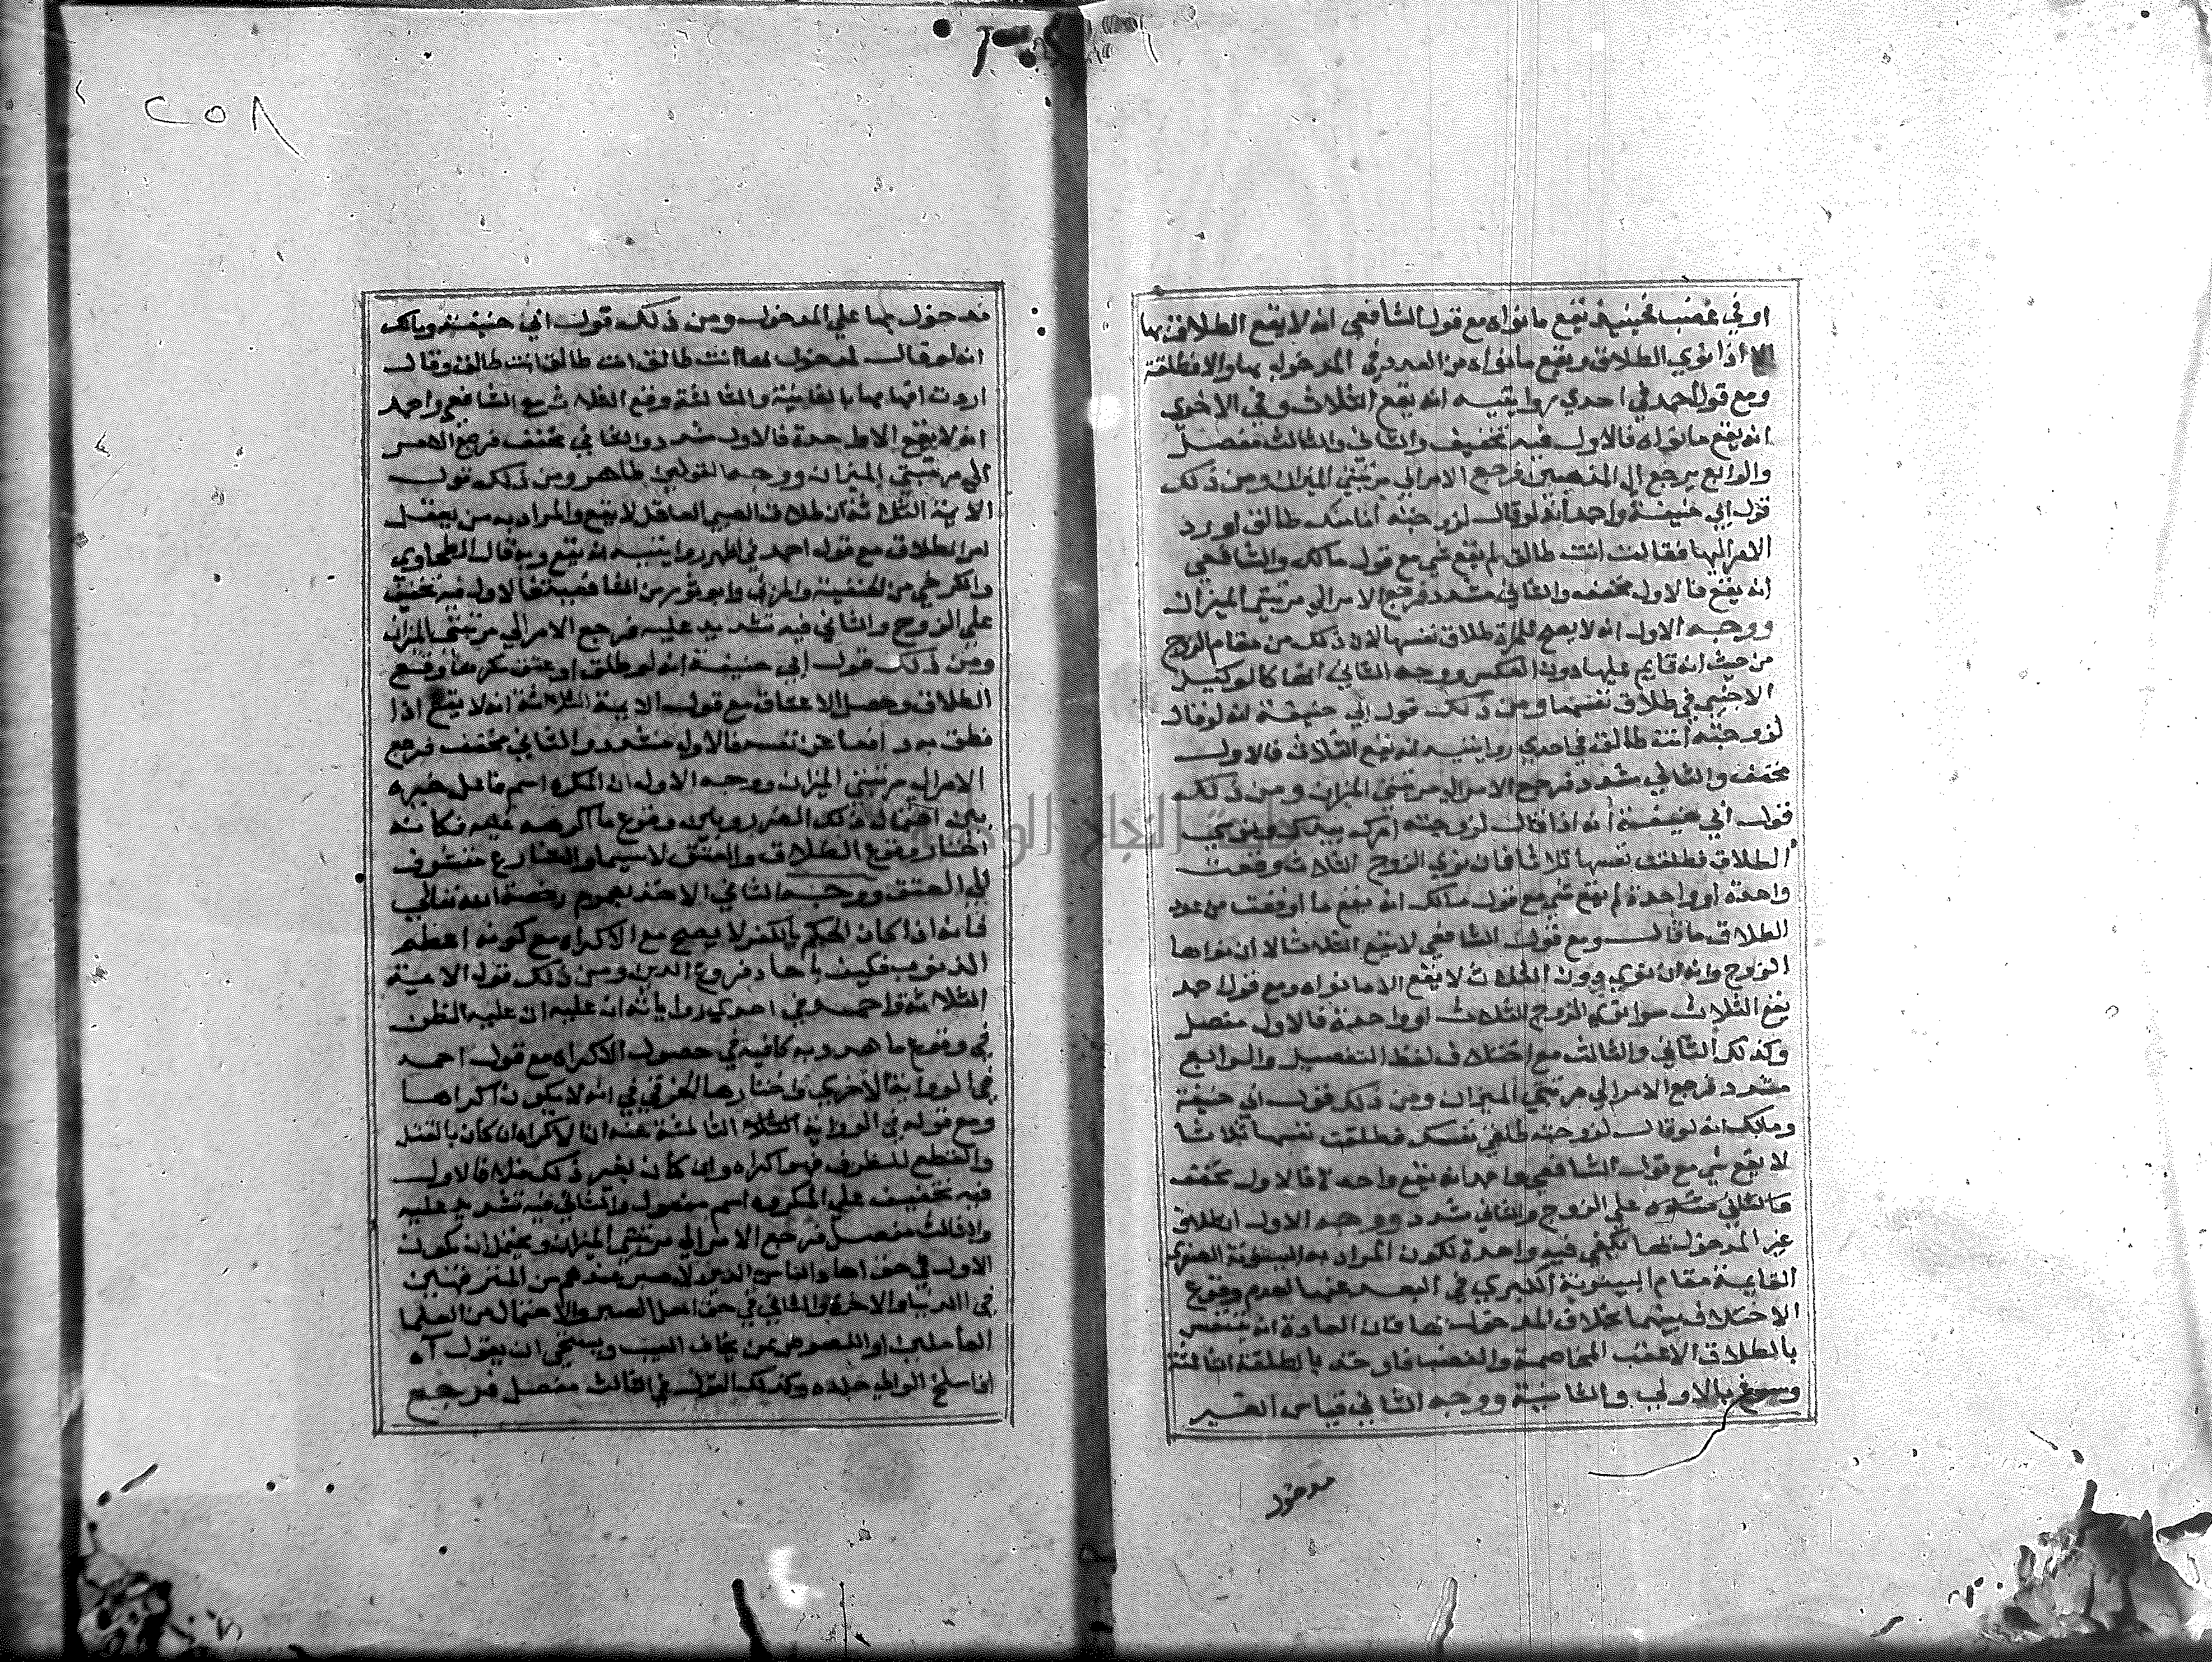 او في غضب فحينئذ يقع ما نواه مع قول الشافعي انه لا يقع الطلاق بها
الا اذا نوي الطلاق ويقع ما نواه من العدد في المدخول بها والا فطلقة
ومع قول احمد في احدي روايتيه انه يقع الثلاث وفي الاخري
انه يقع ما نواه فالاول فيه تخفيف والثاني والثالث مفصل
والرابع يرجع الي المذهبين فرجع الامر الي مرتبتي الميزان ومن ذلك
قول ابي حنيفة واحمد انه لو قال لزوجته انا منك طالق او رد
الامر اليها فقالت انت طالق لم يقع شي مع قول مالك والشافعي
انه يقع فالاول مخفف والثاني مشدد فرجع الامر الي مرتبتي الميزان
ووجه الاول انه لا يصح للمرة طلاق نفسها لان ذلك من مقام الزوج
من حيث انه قايم عليها دون العكس ووجه الثاني انها كالوكيل
الاجنبي في طلاق نفسها ومن ذلك قول ابي حنيفة انه لو قال
لزوجته انت طالق في احدي روايتيه انه يقع الثلاث فالاول
مخفف والثاني مشدد فرجع الامر الي مرتبتي الميزان ومن ذلك
قول ابي حنيفة انه اذا قال لزوجته امرك بيدك ونوي
الطلاق فطلقت نفسها ثلاثا فان نوي الزوج الثلاث وقعت
واحدة او واحدة لم يقع شي مع قول مالك انه يقع ما اوقعت من عدد
الطلاق ما قال ومع قول الشافعي لا يقع الثلاث الا ان نواها
الزوج وانه ان نوي دون الثلاث لا يقع الا ما نواه ومع قول احمد
يقع الثلاث سوا نوي الزوج الثلاث او واحدة فالاول مفصل
وكذلك الثاني والثالث مع اختلاف لفظ التفصيل والرابع
مشدد فرجع الامر الي مرتبتي الميزان ومن ذلك قول ابي حنيفة
ومالك انه لو قال لزوجته طلقي نفسك فطلقت نفسها ثلاثا
لا يقع شي مع قول الشافعي واحمد انه يقع واحدة فالاول مخفف
والثاني علي الزوج والثاني مشدد ووجه الاول ان طلاق
غير المدخول بها يكفي فيه واحدة لكون المراد به البينونة الصغري
القايمة مقام البينونة الكبري في البعد عنها لعدم وقوع
الاختلاف بينهما بخلاف المدخول بها فان العادة انه
بالطلاق الاعقب المخاصمة والغضب بالطلقة الثالثة
بالاولي والثانية ووجه الثاني قياس الغير
مدخول
٢٥٨
مدخول بها علي المدخول ومن ذلك قول ابي حنيفة ومالك
انه لو قال لمدخول بها انت طالق انت طالق انت طالق وقال
اردت افهامها بالثانية والثالثة وقع الثلاث مع الشافعي واحمد
انه لا يقع الا واحدة فالاول مشدد والثاني مخفف فرجع الامر
الي مرتبتي الميزان ووجه القولين ظاهر ومن ذلك قول
الايمة الثلاثة ان طلاق الصبي العاقل لا يقع والمراد به من يعقل
امر الطلاق مع قول احمد في اظهر روايتيه انه يقع وبه قال الطحاوي
والكرخي من الحنفية والمزني وابو ثور من الشافعية فالاول فيه تخفيف
علي الزوج والثاني فيه تشديد عليه فرجع الامر الي مرتبتي الميزان
ومن ذلك قول ابي حنيفة انه لو طلق او عتق مكرها وقع
الطلاق وحصل الاعتاق مع قول الايمة الثلاثة انه لا يقع اذا
نطق به دافعا عن نفسه فالاول مشدد والثاني مخفف فرجع
الامر الي مرتبتي الميزان ووجه الاول ان المكره اسم فاعل خيره
بين احتمال ذلك الضرر وبين وقوع ما اكرهه عليه فكانه
اختار وقوع الطلاق والعتق لا سيما والشارع متشوف
الي العتق ووجه الثاني الاخذ بعموم رخصة الله تعالي
فانه اذا كان الحكم بالكفر لا يصح مع الاكراه مع كونه اعظم
الذنوب فكيف باحاد فروع الدين ومن ذلك قول الايمة
الثلاثة واحمد في احدي رواياته ان غلبة الظن
في وقوع ما هدد به كافية في حصول الاكراه مع قول احمد
في الرواية الاخري واختارها الخرقي في انه لا يكون اكراها
ومع قوله في الرواية الثالثة عنه ان الاكراه ان كان بالقتل
والقطع للطرف فهو اكراه وان كان بغير ذلك فلا فالاول
فيه تخفيف علي المكره اسم مفعول والثاني فيه تشديد عليه
والثالث مفصل فرجع الامر الي مرتبتي الميزان ويحتمل ان يكون
الاول في حق احاد الناس الذين لا صبر عندهم من المترفهين
في الدنيا والاخرة والثاني في حق اهل الصبر والاحتمال من العلما
العاملين او اللصوص ممن يخاف العيب ويستحي ان يقول آه
اذا سلخ الوالي جلده وكذلك القول في الثالث مفصل فرجع